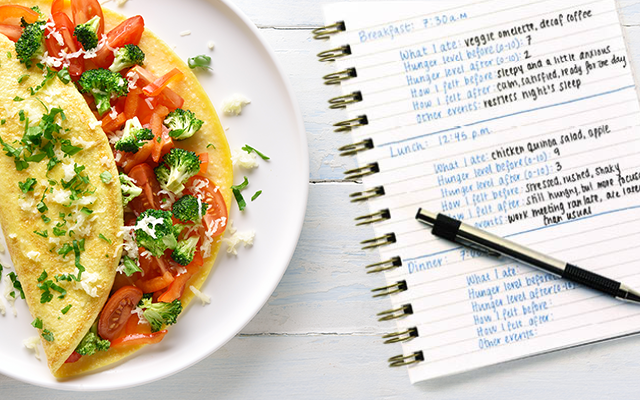 Breakfast: 7:30 a.m
What I ate: veggie omelette, decaf coffee
Hunger level before (0-10): 7
Hunger level after (0-10): 2
How I felt before: sleepy and a little anxious
How I felt after: calm, satisfied, ready for the day
Other events: restless night's sleep
Lunch: 12:45 pm.
What I ate: chicken quinoa salad, apple
Hunger level before (0-10): 9
Hunger level after (0-10): 3
How I felt before: stressed, rushed, shaky
How I felt after: still hungry, but more focused
Other events: work meeting ran late, ate
than usual
Dinner: 7
What I ate:
Hunger level before (0-10):
Hunger level after (0-10):
How I felt before:
How I felt after:
Other events: